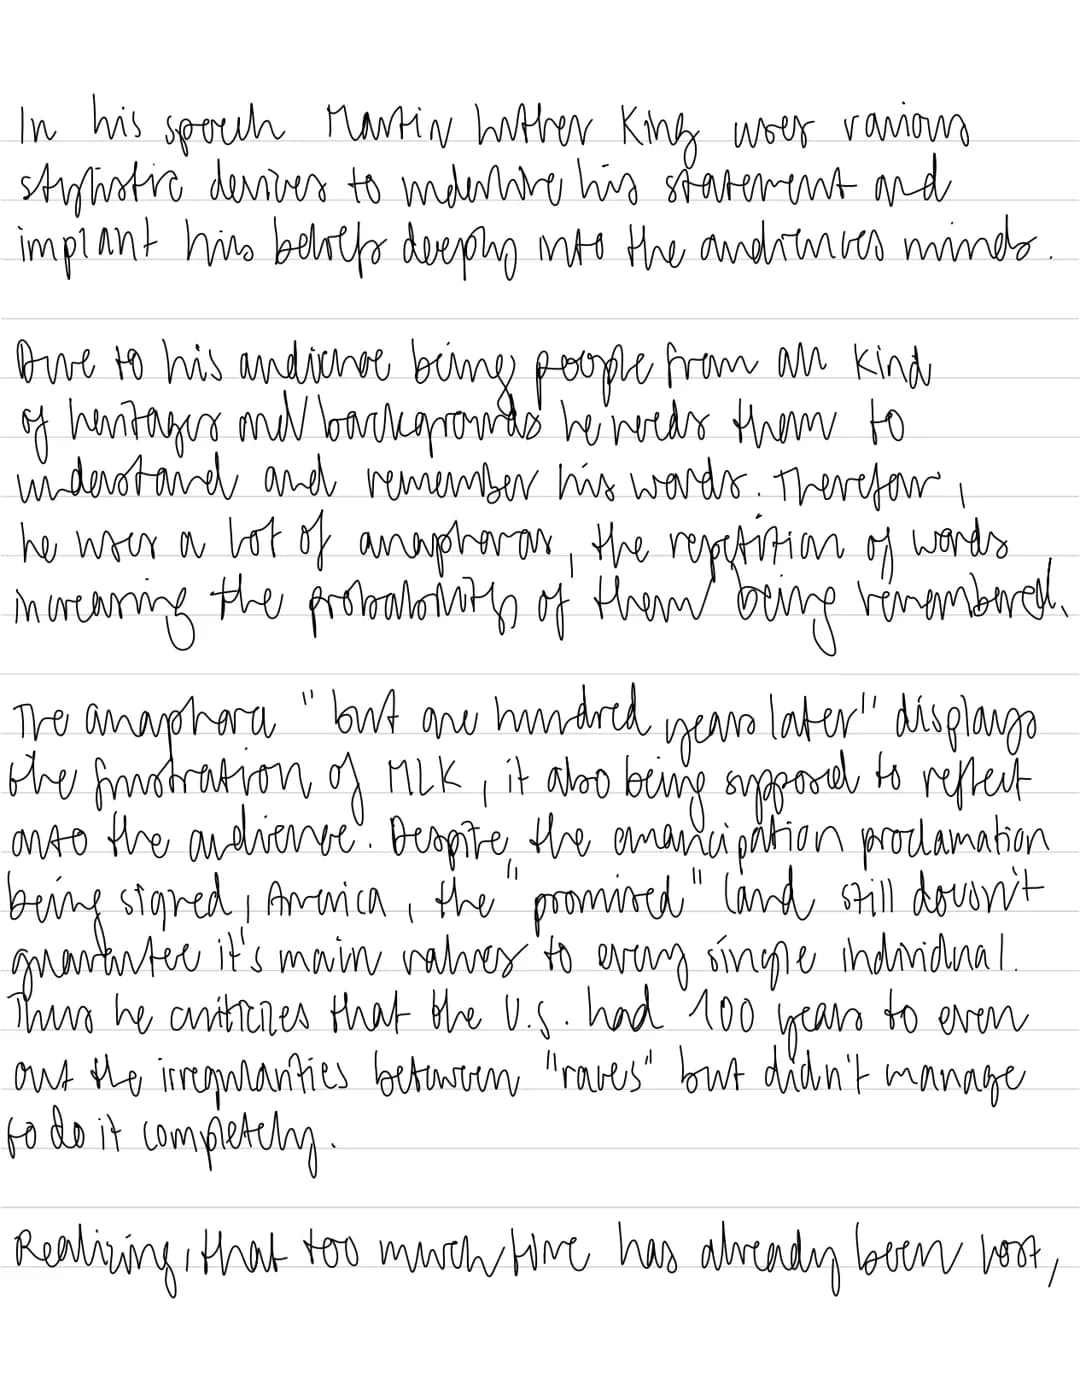 In his speech Martin Luther King uses various
stylistic devices to underline his statement and
implant his beliefs deeply into the audiences minds.
Due to his audience being people from all kind
of heritages and backgrounds he needs them to
understand and remember his words. Therefor,
he uses a lot of anaphoras, the repetition of words
increasing the probability of them being remembered.
The anaphora "but one hundred years later" displays
the frustration of MLK, it also being supposed to reflect
onto the audience. Despite the emancipation proclamation
being signed, America, the "promised" land still doesn't
guarantee it's main values to every single individual.
Thus he criticizes that the U.S. had 100 years to even
out the irregularities between "races" but didn't manage
to do it completely.
Realizing, that too much time has already been lost,